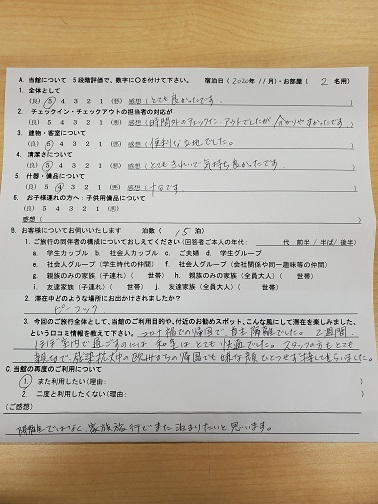 A. 当館について 5段階評価で、数字に〇を付けて下さい。 宿泊日(2020年 11月)・お部屋( 2 名用)
1. 全体として
(良) 5 4 3 2 1 (悪) 感想(とても良かったです。)
2. チェックイン・チェックアウトの担当者の対応が
(良) 5 4 3 2 1 (悪) 感想(時間外のチェックイン・アウトでしたが 分かりやすかったです。)
3. 建物・客室について
(良) 5 4 3 2 1 (悪) 感想(便利な立地でした。)
4. 清潔さについて
(良) 5 4 3 2 1 (悪) 感想(とてもきれいで気持ち良かったです)
5. 什器・備品について
(良) 5 4 3 2 1 (悪) 感想(十分です。)
6. お子様連れの方へ:子供用備品について
(良) 5 4 3 2 1 (悪)
感想( )
B. お客様についてお伺いいたします 泊数( 15 泊)
1. ご旅行の同伴者の構成についておしえてください(回答者ご本人の年代: 代 前半/半ば/後半)
a. 学生カップル b. 社会人カップル c. ご夫婦 d. 学生グループ
e. 社会人グループ(学生時代の仲間) f. 社会人グループ(会社関係や同一趣味等の仲間)
g. 親族のみの家族(子連れ)( 世帯) h. 親族のみの家族(全員大人)( 世帯)
i. 友達家族(子連れ)( 世帯) j. 友達家族(全員大人)( 世帯)
2. 滞在中どのような場所にお出かけされましたか?
ピーコック
3. 今回のご旅行全体として、当館のご利用目的や、付近のお勧めスポット、こんな風にして滞在を楽しみました、
という口コミ情報を教えて下さい。 コロナ禍での帰国で、自主隔離でした。2週間
ほぼ室内で過ごすのには 和室はとても快適でした。スタッフの方もとても
親切で、感染拡大中の欧州からの帰国でも嫌な顔ひとつせず接してもらいました。
C. 当館の再度のご利用について
1. また利用したい(理由: )
2. 二度と利用したくない(理由: )
(ご感想)
隔離ではなく、家族旅行でまた泊まりたいと思います。